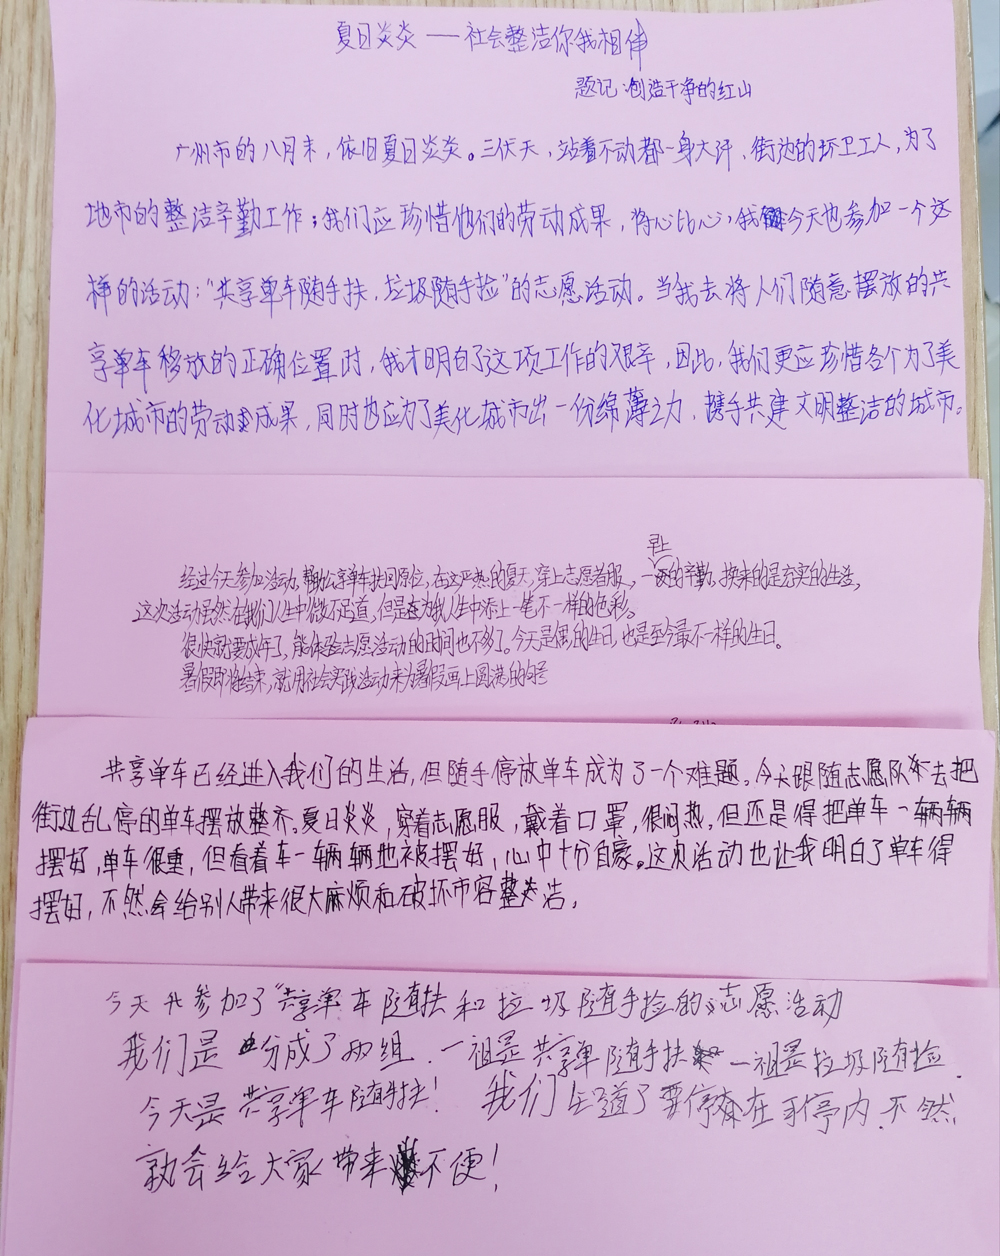 夏日炎炎——社会整洁你我相伴
题记：创造干净的红山
广州市的八月末，依旧夏日炎炎。三伏天，站着不动都一身大汗，街边的环卫工人，为了
地市的整洁辛勤工作；我们应珍惜他们的劳动成果，将心比心，我今天也参加一个这
样的活动："共享单车随手扶，垃圾随手捡"的志愿活动。当我去将人们随意摆放的共
享单车移放的正确位置时，我才明白了这项工作的艰辛，因此，我们更应珍惜各个为了美
化城市的劳动成果，同时也应为了美化城市出一份绵薄之力，携手共建文明整洁的城市。
经过今天参加活动，帮助公享单车扶回原位，在这严热的夏天，穿上志愿者服，一早上的辛勤，换来的是充实的生活，
这次活动虽然在我们人生中微不足道，但是在为我人生中添上一笔不一样的色彩。
很快就要成年了，能体验志愿活动的时间也不够了。今天是偶的生日，也是至今最不一样的生日。
暑假即将结束，就用社会实践活动来为暑假画上圆满的句号
共享单车已经进入我们的生活，但随手停放单车成为了一个难题。今天跟随志愿队去把
街边乱停的单车摆放整齐。夏日炎炎，穿着志愿服，戴着口罩，很闷热，但还是得把单车一辆辆
摆好，单车很重，但看着车一辆辆地被摆好，心中十分自豪。这次活动也让我明白了单车得
摆好，不然会给别人带来很大麻烦和破坏市容整洁。
今天我参加了"共享单车随手扶和垃圾随手捡的志愿活动
我们是分成了两组．一组是共享单随手扶 一组是垃圾随手捡．
今天是共享单车随手扶！ 我们知道了要停在可停内．不然
就会给大家带来不便！